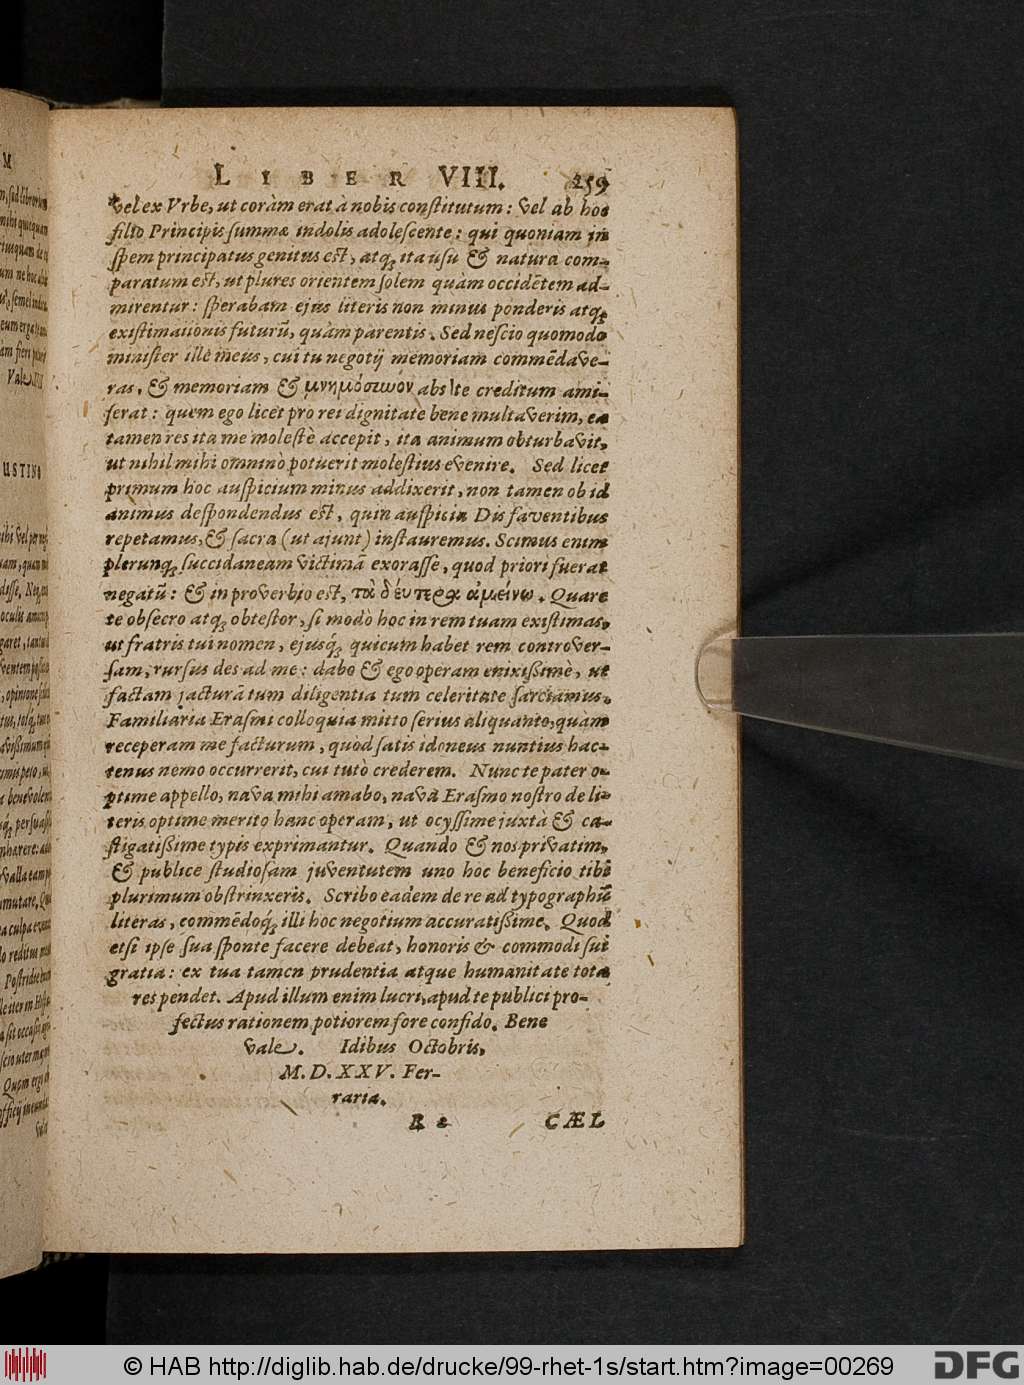 LIBER VIII. 259
vel ex Vrbe, ut coràm erat à nobis constitutum: vel ab hoc
filio Principis summæ indolis adolescente: qui quoniam in
spem principatus genitus est, atq; ita usu & natura com-
paratum est, ut plures orientem solem quàm occidētem ad-
mirentur: sperabam ejus literis non minus ponderis atq;
existimationis futurū, quàm parentis. Sed nescio quomodo
minister ille meus, cui tu negotij memoriam commēdave-
ras, & memoriam & μνημόσυνον abs te creditum ami-
serat: quem ego licet pro rei dignitate bene multaverim, ea
tamen res ita me molestè accepit, ita animum obturbavit,
ut nihil mihi omninò potuerit molestius evenire. Sed licet
primum hoc auspicium minus addixerit, non tamen ob id
animus despondendus est, quin auspicia Dis faventibus
repetamus, & sacra (ut ajunt) instauremus. Scimus enim
plerunq; succidaneam victimā exorasse, quod priori fuerat
negatū: & in proverbio est, τὰ δέυτερα ἀμείνω. Quare
te obsecro atq; obtestor, si modò hoc in rem tuam existimas,
ut fratris tui nomen, ejusq́; quicum habet rem controver-
sam, rursus des ad me: dabo & ego operam enixißimè, ut
factam jacturā tum diligentia tum celeritate sarciamus.
Familiaria Erasmi colloquia mitto serius aliquanto, quàm
receperam me facturum, quòd satis idoneus nuntius hac-
tenus nemo occurrerit, cui tutò crederem. Nunc te pater o-
ptime appello, nava mihi amabo, navà Erasmo nostro de li-
teris optime merito hanc operam, ut ocyssime juxtà & ca-
stigatißime typis exprimantur. Quando & nos privatim,
& publice studiosam juventutem uno hoc beneficio tibi
plurimum obstrinxeris. Scribo eadem de re ad typographū
literas, commēdoq́; illi hoc negotium accuratißime. Quod
etsi ipse sua sponte facere debeat, honoris & commodi sui
gratia: ex tua tamen prudentia atque humanitate tota
res pendet. Apud illum enim lucri, apud te publici pro-
fectus rationem potiorem fore confido. Bene
vale. Idibus Octobris,
M. D. XXV. Fer-
raria.
R 2 CÆL
© HAB http://diglib.hab.de/drucke/99-rhet-1s/start.htm?image=00269 DFG